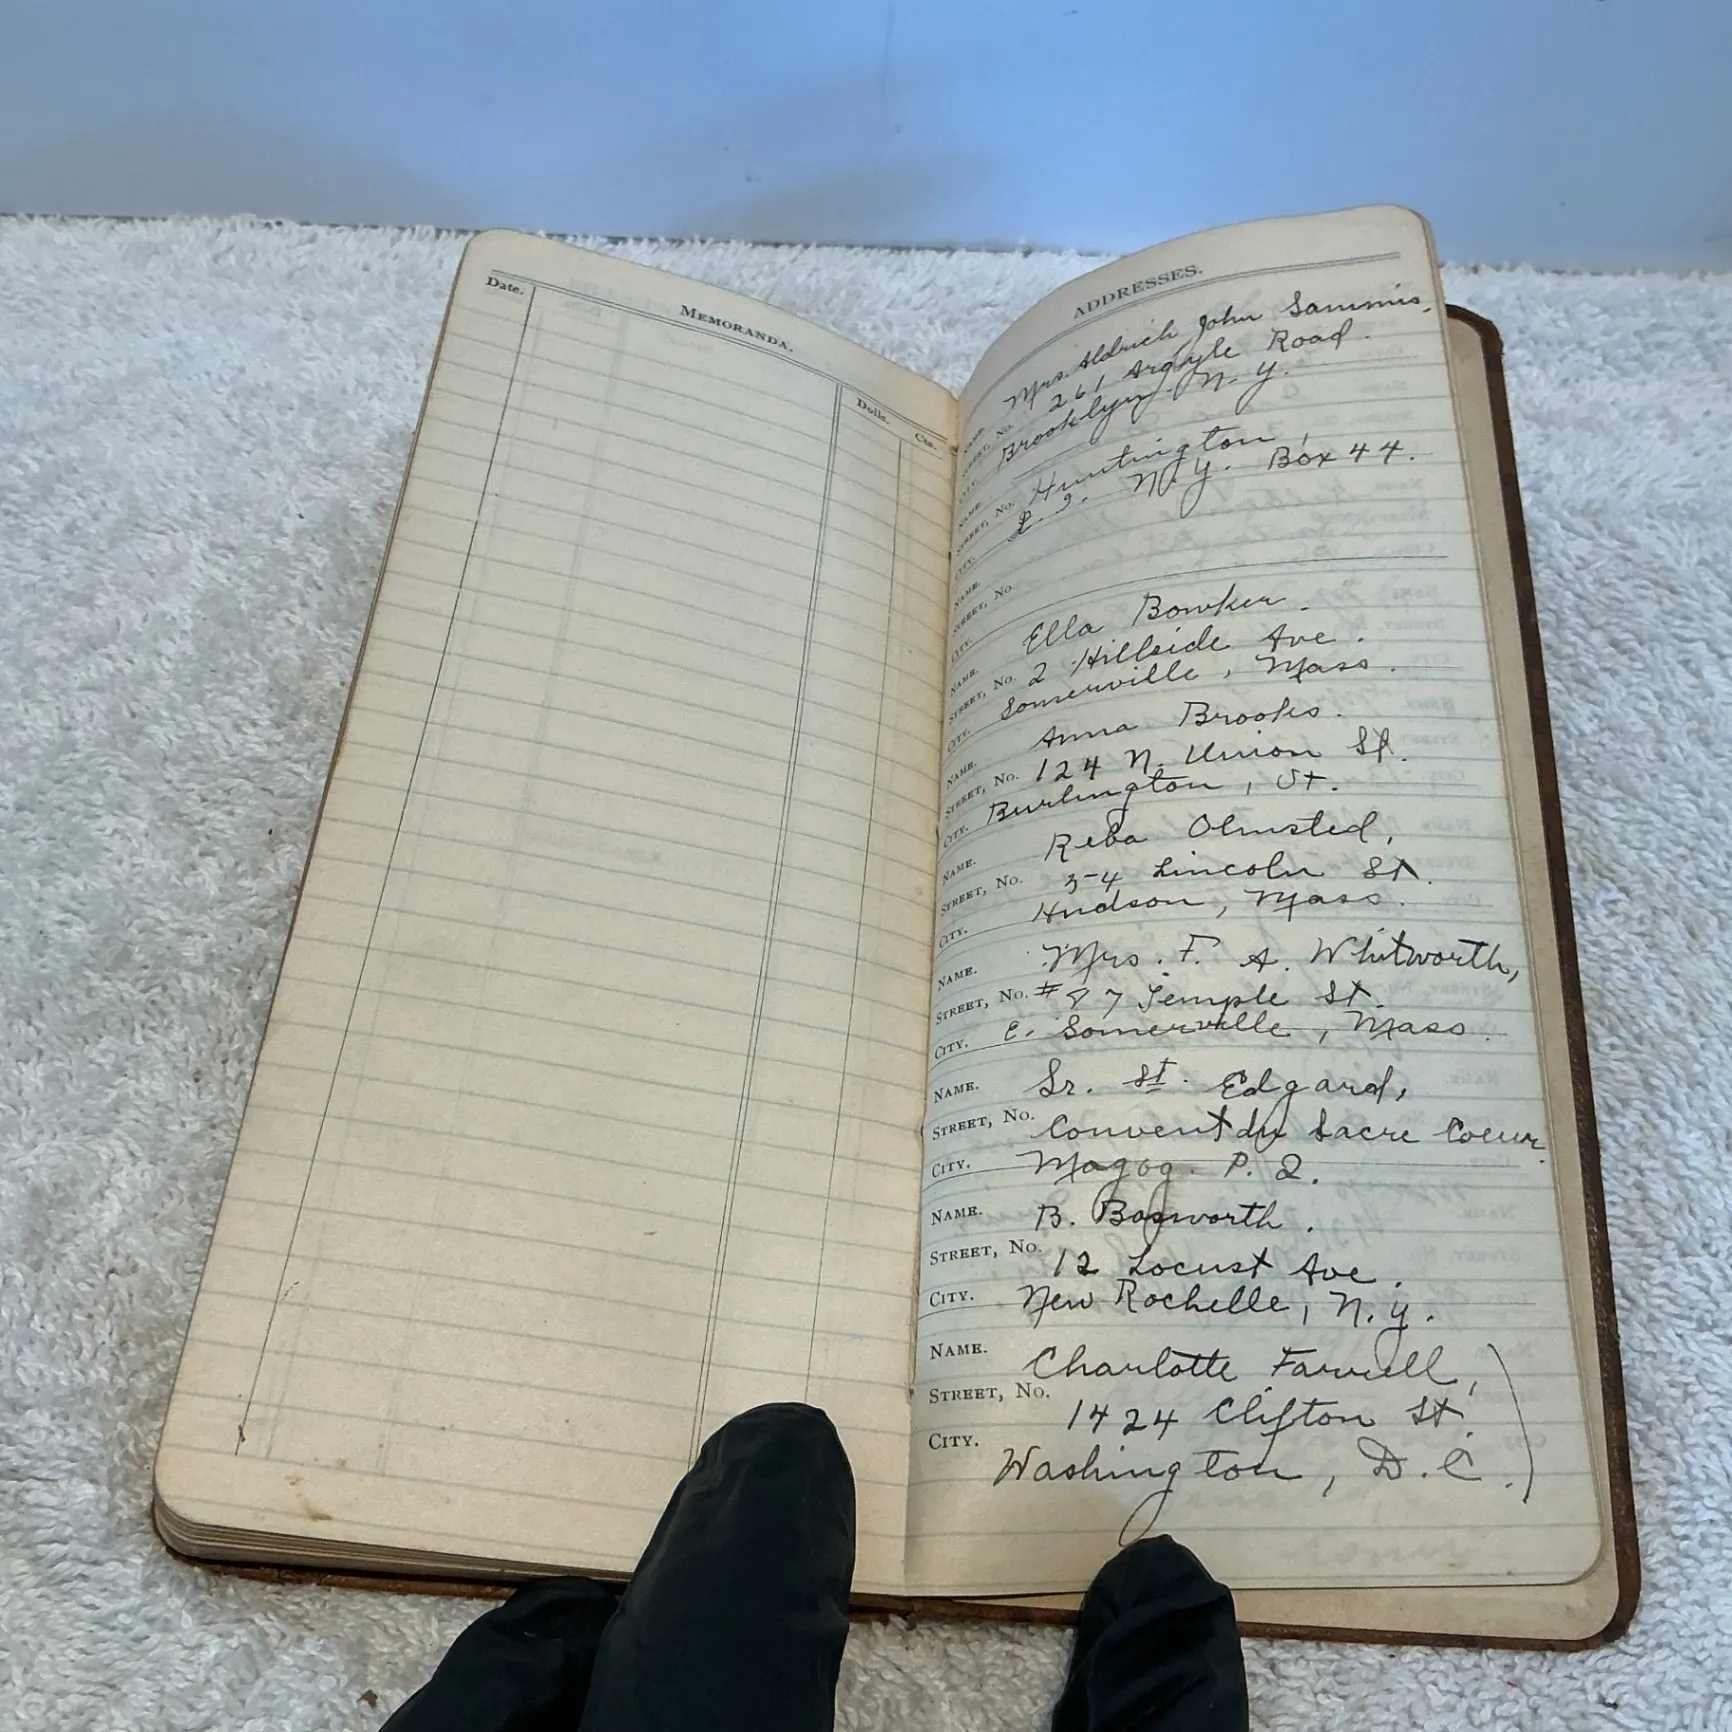 Date.
MEMORANDA.
Dolls.
Cts.
ADDRESSES.
NAME. Mrs. Aldrich John Sammis.
STREET, NO. 261 Argyle Road.
CITY. Brooklyn. N. Y.
NAME. Huntington,
STREET, NO. L. I. N. Y. Box 44.
CITY.
NAME.
STREET, NO.
CITY. Ella Bowker.
NAME. 2 Hillside Ave.
STREET, NO. Somerville, Mass.
CITY. Anna Brooks.
NAME.
STREET, NO. 124 N. Union St.
CITY. Burlington, Vt.
NAME. Reba Olmsted,
STREET, NO. 54 Lincoln St.
CITY. Hudson, Mass.
NAME. Mrs. F. A. Whitworth,
STREET, NO. #87 Temple St.
CITY. E. Somerville, Mass.
NAME. Sr. St. Edgard,
STREET, NO. Convent du Sacre Coeur.
CITY. Magog. P. Q.
NAME. B. Bosworth.
STREET, NO. 12 Locust Ave.
CITY. New Rochelle, N. Y.
NAME. Charlotte Farrell,
STREET, NO. 1424 Clifton St.
CITY. Washington, D. C.)